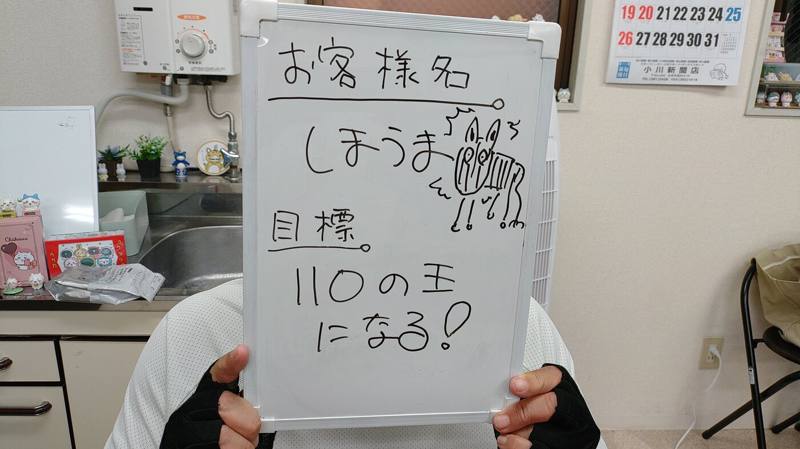 お客様名
しほうま
目標
110の王
になる!
19 20 21 22 23 24 25
26 27 28 29 30 31
小川新聞店